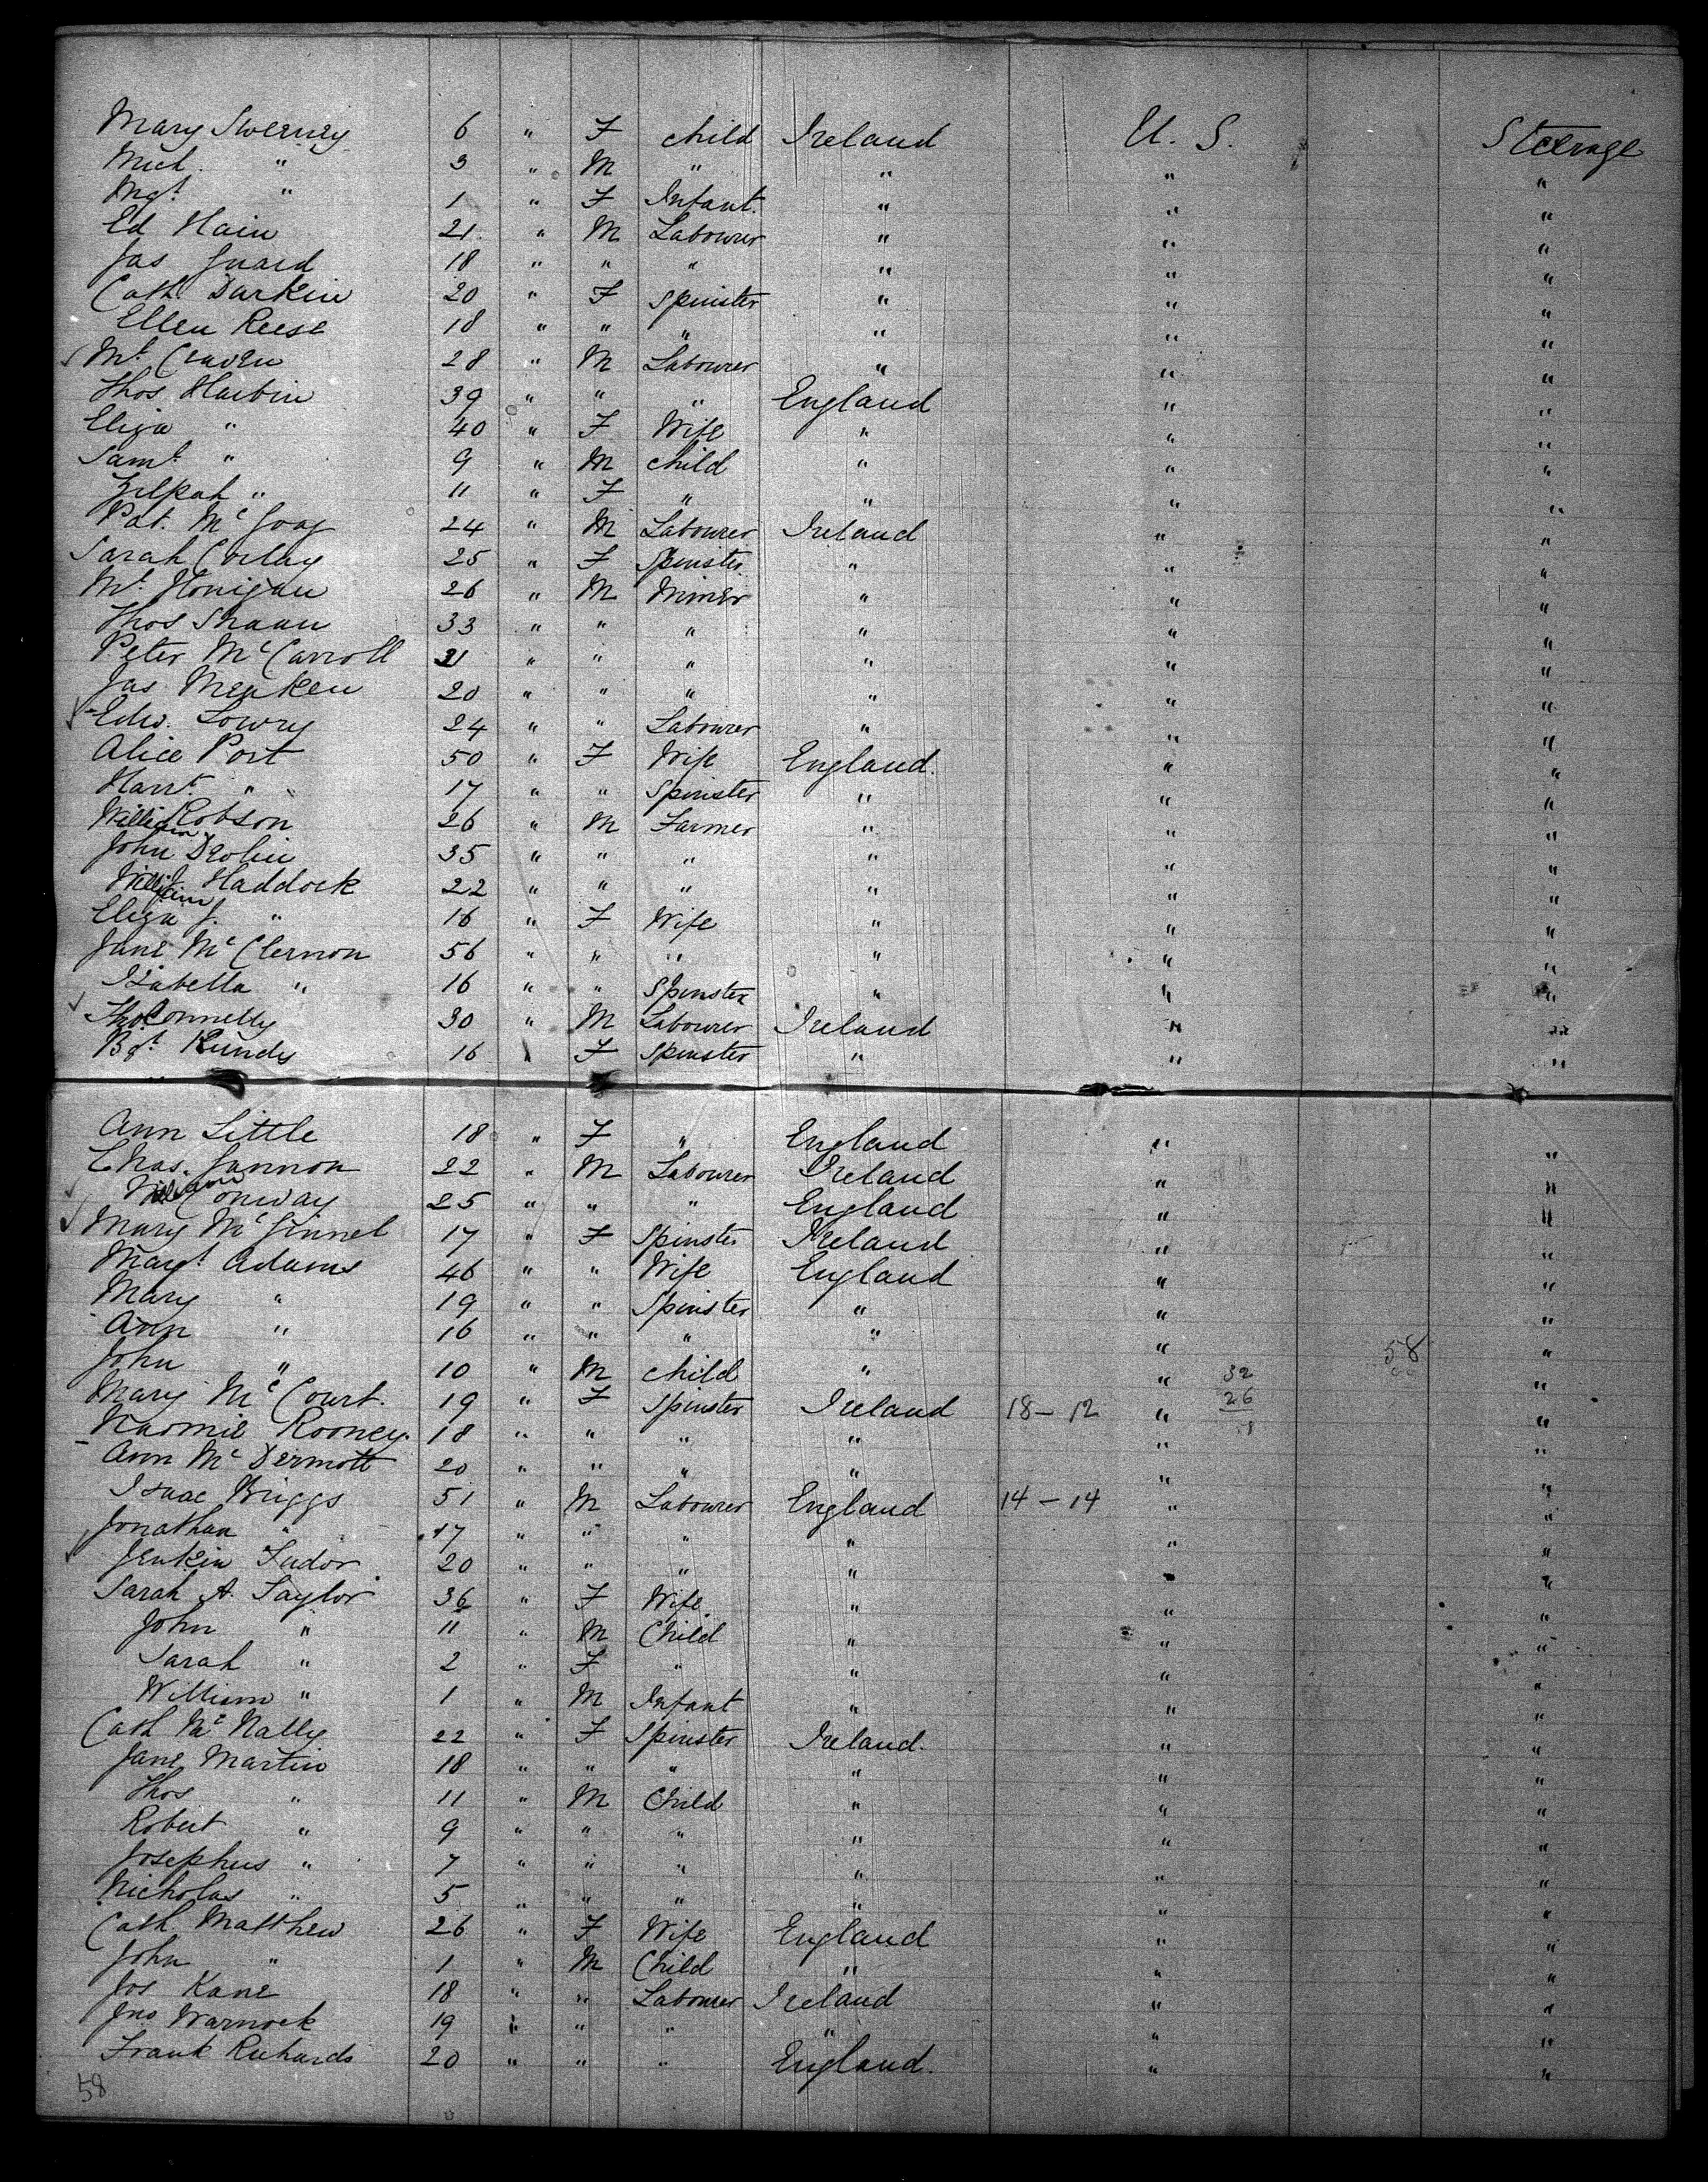 Mary Sweeney 6 " F child Ireland U. S. Steerage
Mich. " 3 " M " " " "
Mgt " 1 " F Infant. " " "
Ed Hain 21 " M Labourer " " "
Jas Guard 18 " " " " " "
Cath. Durkin 20 " F Spinster " " "
Ellen Reese 18 " " " " " "
Mt Craven 28 " M Labourer " " "
Thos Harbin 39 " " " England " "
Eliza " 40 " F Wife " " "
Saml " 9 " M child " " "
Zilpah " 11 " F " " " "
Pat. Mc 24 " M Labourer Ireland " "
Sarah Corlay 25 " F Spinster " " "
Mt Honigan 26 " M Miner " " "
Thos Shaan 33 " " " " " "
Peter McCarroll 31 " " " " " "
Jas Meaken 20 " " " " " "
Edw. Lowry 24 " " Labourer " " "
Alice Port 50 " F Wife England. " "
Harrt " 17 " " Spinster " " "
William Robson 26 " M Farmer " " "
John Devlin 35 " " " " " "
William J Haddock 22 " " " " " "
Eliza J. " 16 " F Wife " " "
Jane McClernon 56 " " " " " "
Isabella " 16 " " Spinster " " "
Thos Connelly 30 " M Labourer Ireland " "
Bgt 16 " F Spinster " " "
Ann Little 18 " F " England " "
Chas. Gannon 22 " M Labourer Ireland " "
William Conway 25 " " " England " "
Mary McGinnel 17 " F Spinster Ireland " "
Magt Adams 46 " " Wife England " "
Mary " 19 " " Spinster " " "
Ann " 16 " " " " " "
John " 10 " M child " " 58 "
Mary McCourt. 19 " F Spinster Ireland 18-12 " 32 26 "
Naomie Rooney. 18 " " " " " "
Ann McDermott 20 " " " " " "
Isaac Briggs 51 " M Labourer England 14-14 " "
Jonathan " 17 " " " " " "
Jenkin Tudor 20 " " " " " "
Sarah A. Taylor 36 " F Wife. " " "
John " 11 " M Child " " "
Sarah " 2 " F " " " "
William " 1 " M Infant " " "
Cath McNally 22 " F Spinster Ireland. " "
Jane Martin 18 " " " " " "
Thos " 11 " M Child " " "
Robert " 9 " " " " " "
Josephus " 7 " " " " " "
Nicholas " 5 " " " " " "
Cath. Matthew 26 " F Wife England " "
John " 1 " M Child " " "
Jos Kane 18 " " Labourer Ireland " "
Jno Warnock 19 " " " " " "
Frank Richards 20 " " " England. " "
58